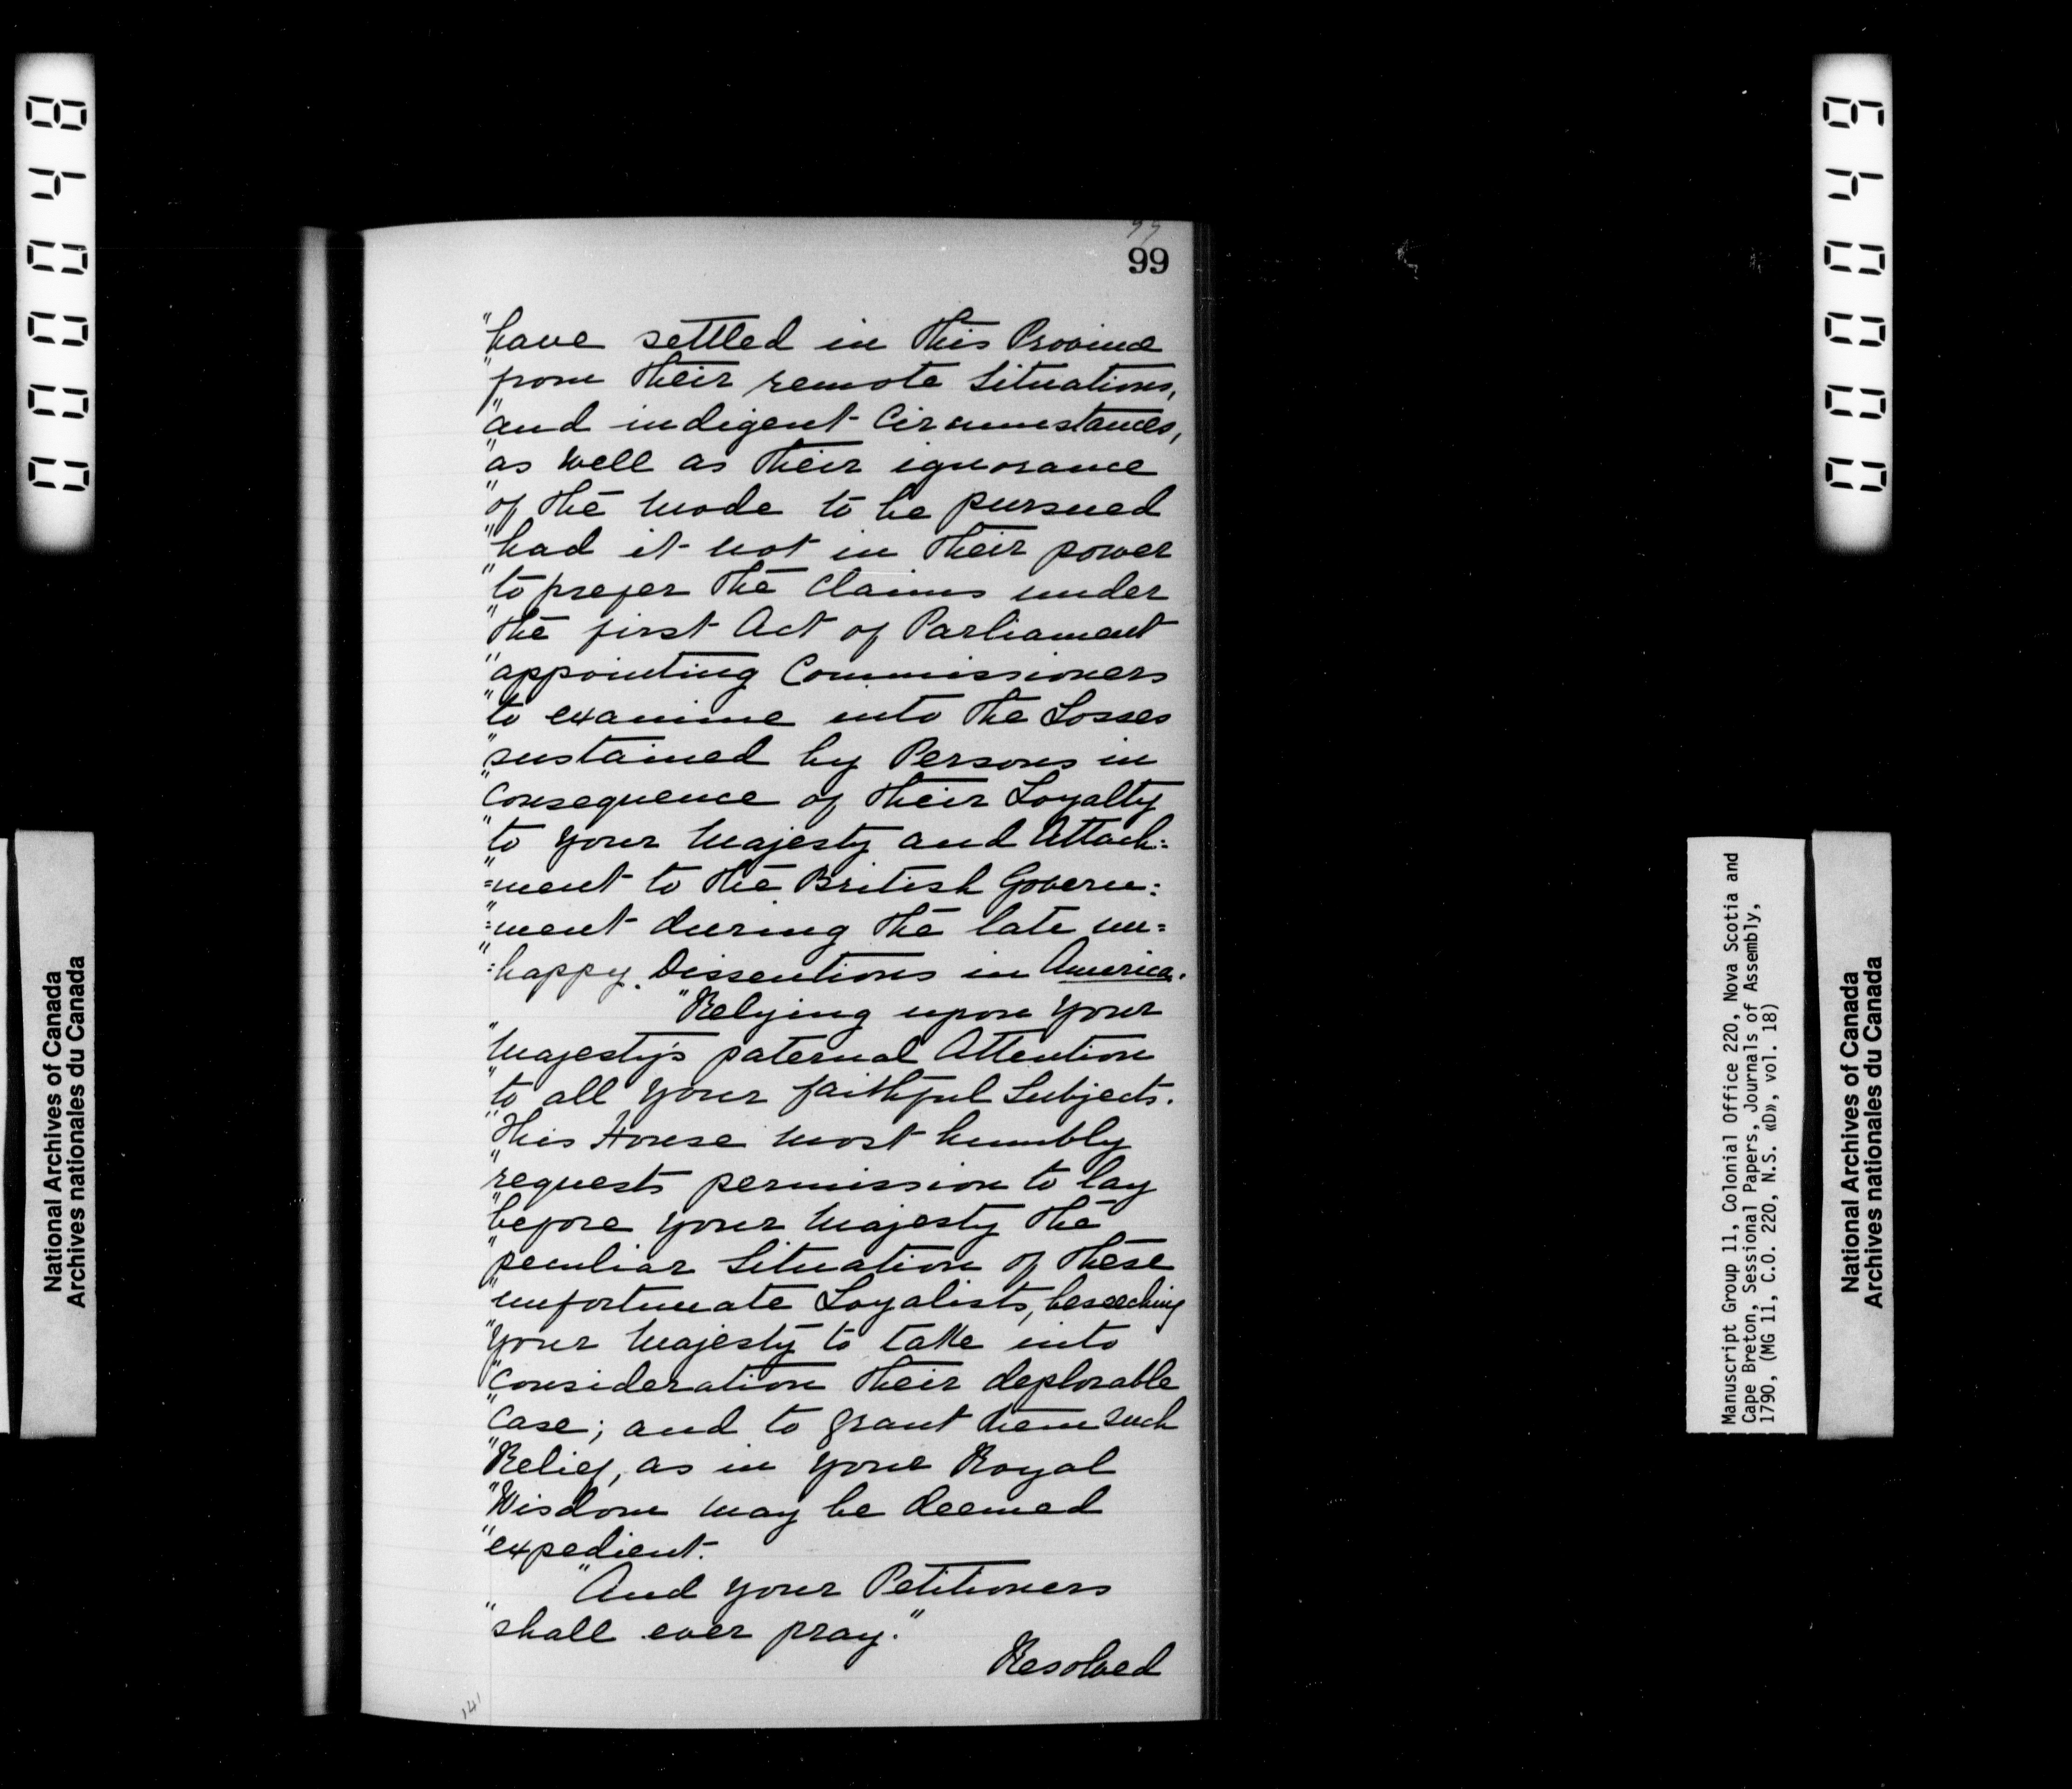 99
99
"have settled in this Province
"from their remote Situations,
"and indigent Circumstances,
"as well as their ignorance
"of the mode to be pursued
"had it not in their power
"to prefer the Claims under
"the first Act of Parliament
"appointing Commissioners
"to examine into the Losses
"sustained by Persons in
"Consequence of their Loyalty
"to your Majesty and Attach:
"=ment to the British Govern:
"=ment during the late un=
"=happy Dissentions in America.
"Relying upon your
"Majesty's paternal Attention
"to all your faithful Subjects.
"This House most humbly
"requests permission to lay
"before your Majesty the
"peculiar Situation of these
"unfortunate Loyalists, beseeching
"your Majesty to take into
"Consideration their deplorable
"Case; and to grant them such
"Relief, as in your Royal
"Wisdom may be deemed
"expedient.
"And your Petitioners
"shall ever pray."
Resolved
141
000048
000049
National Archives of Canada
Archives nationales du Canada
Manuscript Group 11, Colonial Office 220, Nova Scotia and
Cape Breton, Sessional Papers, Journals of Assembly,
1790, (MG 11, C.O. 220, N.S. «D», vol. 18)
National Archives of Canada
Archives nationales du Canada